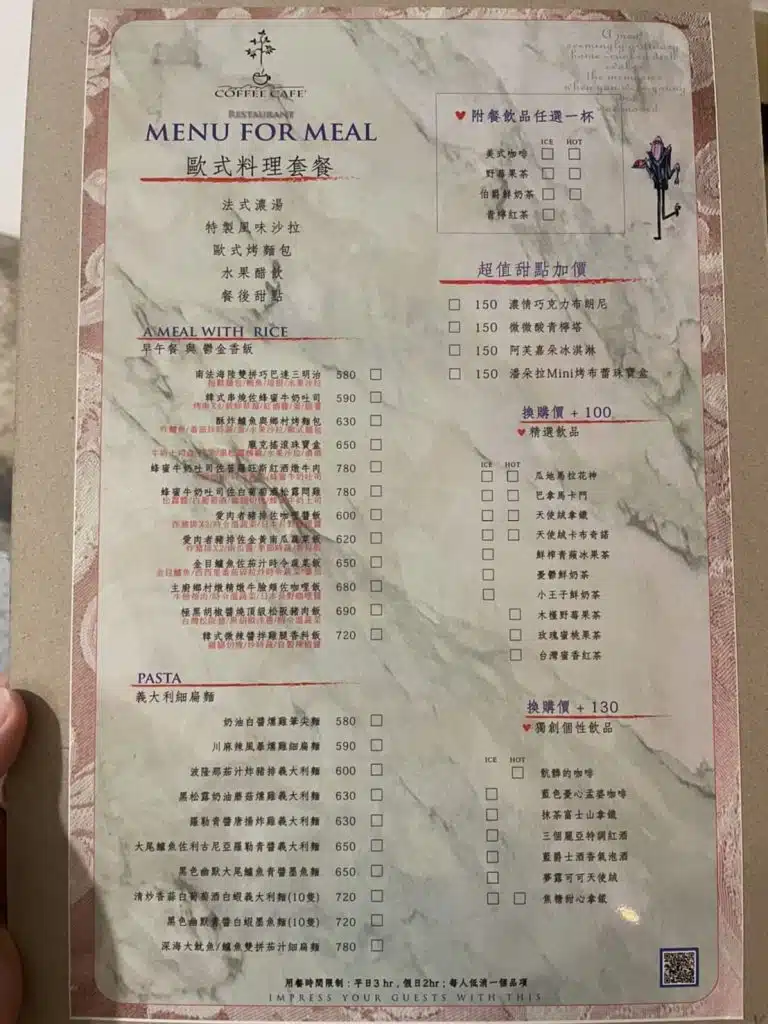 COFFEE CAFE'
RESTAURANT
MENU FOR MEAL
歐式料理套餐
法式濃湯
特製風味沙拉
歐式烤麵包
水果醋飲
餐後甜點
A MEAL WITH RICE
早午餐 與 鬱金香飯
南法海陸雙拼巧巴達三明治 580
韓式串燒佐蜂蜜牛奶吐司 590
酥炸鱸魚與鄉村烤麵包 630
龐克搖滾珠寶盒 650
蜂蜜牛奶吐司佐普羅旺斯紅酒燉牛肉 780
蜂蜜牛奶吐司佐白葡萄酒松露悶雞 780
愛肉者豬排佐咖哩醬飯 600
愛肉者豬排佐金黃南瓜蔬菜飯 620
金目鱸魚佐茄汁時令蔬菜飯 650
主廚鄉村燉精燉牛臉頰佐咖哩飯 680
極黑胡椒醬燒頂級松阪豬肉飯 690
韓式微辣醬拌雞腿香料飯 720
PASTA
義大利細扁麵
奶油白醬燻雞筆尖麵 580
川麻辣風暴燻雞細扁麵 590
波隆那茄汁炸豬排義大利麵 600
黑松露奶油蘑菇燻雞義大利麵 630
羅勒青醬唐揚炸雞義大利麵 630
大尾鱸魚佐利古尼亞羅勒青醬義大利麵 650
黑色幽默大尾鱸魚青醬墨魚麵 650
清炒香蒜白葡萄酒白蝦義大利麵(10隻) 720
黑色幽默青醬白蝦墨魚麵(10隻) 720
深海大魷魚/鱸魚雙拼茄汁細扁麵 780
附餐飲品任選一杯
ICE HOT
美式咖啡
野莓果茶
伯爵鮮奶茶
青檸紅茶
超值甜點加價
150 濃情巧克力布朗尼
150 微微酸青檸塔
150 阿芙嘉朵冰淇淋
150 潘朵拉Mini烤布蕾珠寶盒
換購價 + 100
精選飲品
ICE HOT
瓜地馬拉花神
巴拿馬卡門
天使絨拿鐵
天使絨卡布奇諾
鮮榨青蘋冰果茶
憂鬱鮮奶茶
小王子鮮奶茶
木槿野莓果茶
玫瑰蜜桃果茶
台灣蜜香紅茶
換購價 + 130
獨創個性飲品
ICE HOT
骯髒的咖啡
藍色憂心孟婆咖啡
抹茶富士山拿鐵
三個麗亞特調紅酒
藍爵士酒香氣泡酒
夢露可可天使絨
焦糖甜心拿鐵
用餐時間限制：平日3 hr，假日2hr；每人低消一個品項
IMPRESS YOUR GUESTS WITH THIS